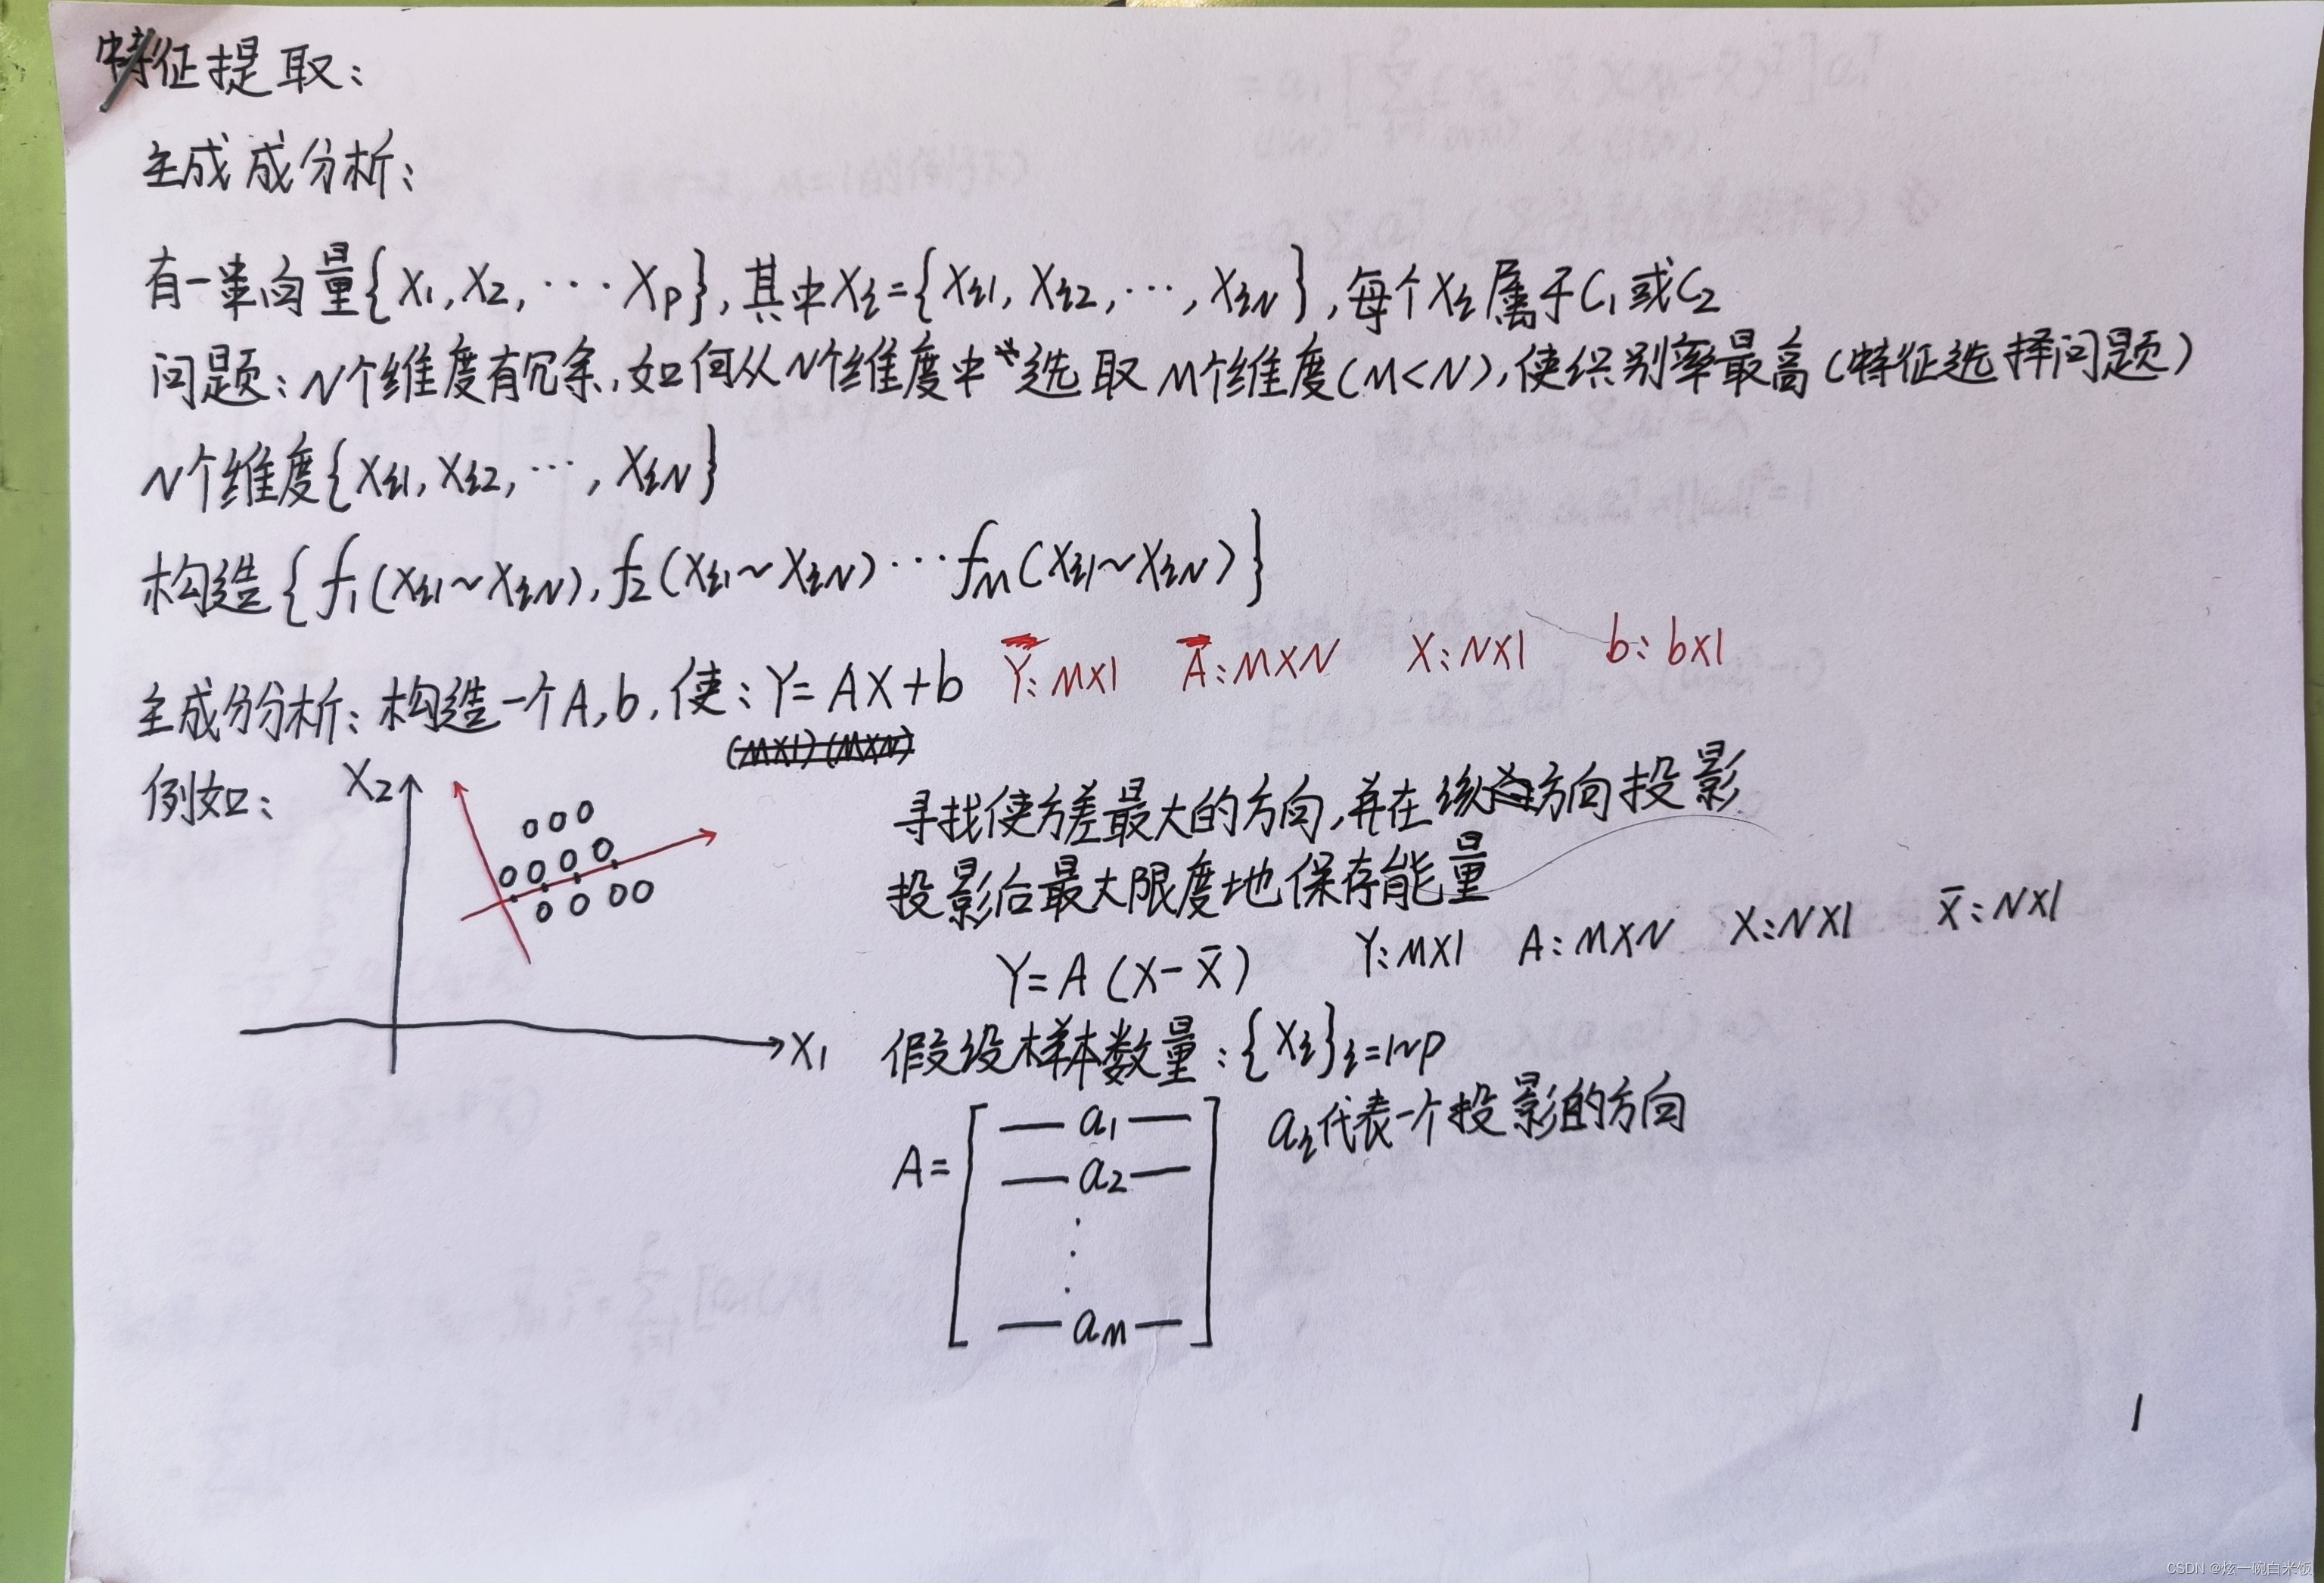 特征提取:
主成成分析:
有一类向量{X1, X2, ··· Xp}, 其中Xi={Xi1, Xi2, ···, XiN}, 每个Xi属于C1或C2
问题: N个维度有冗余, 如何从N个维度中选取M个维度(M<N), 使识别率最高(特征选择问题)
N个维度{Xi1, Xi2, ···, XiN}
构造{f1(Xi1~XiN), f2(Xi1~XiN)···fM(Xi1~XiN)}
主成分分析: 构造一个A, b, 使: Y=AX+b Y: M×1 A: M×N X: N×1 b: b×1
(M×1) (M×N)
例如: X2
X1
寻找使方差最大的方向, 并在该方向投影
投影后最大限度地保存能量
Y=A(X-X̄) Y: M×1 A: M×N X: N×1 X̄: N×1
假设样本数量: {Xi}i=1~P
A=[—a1— —a2— ··· —aM—] ai代表一个投影的方向
1
CSDN @炫一碗白米饭